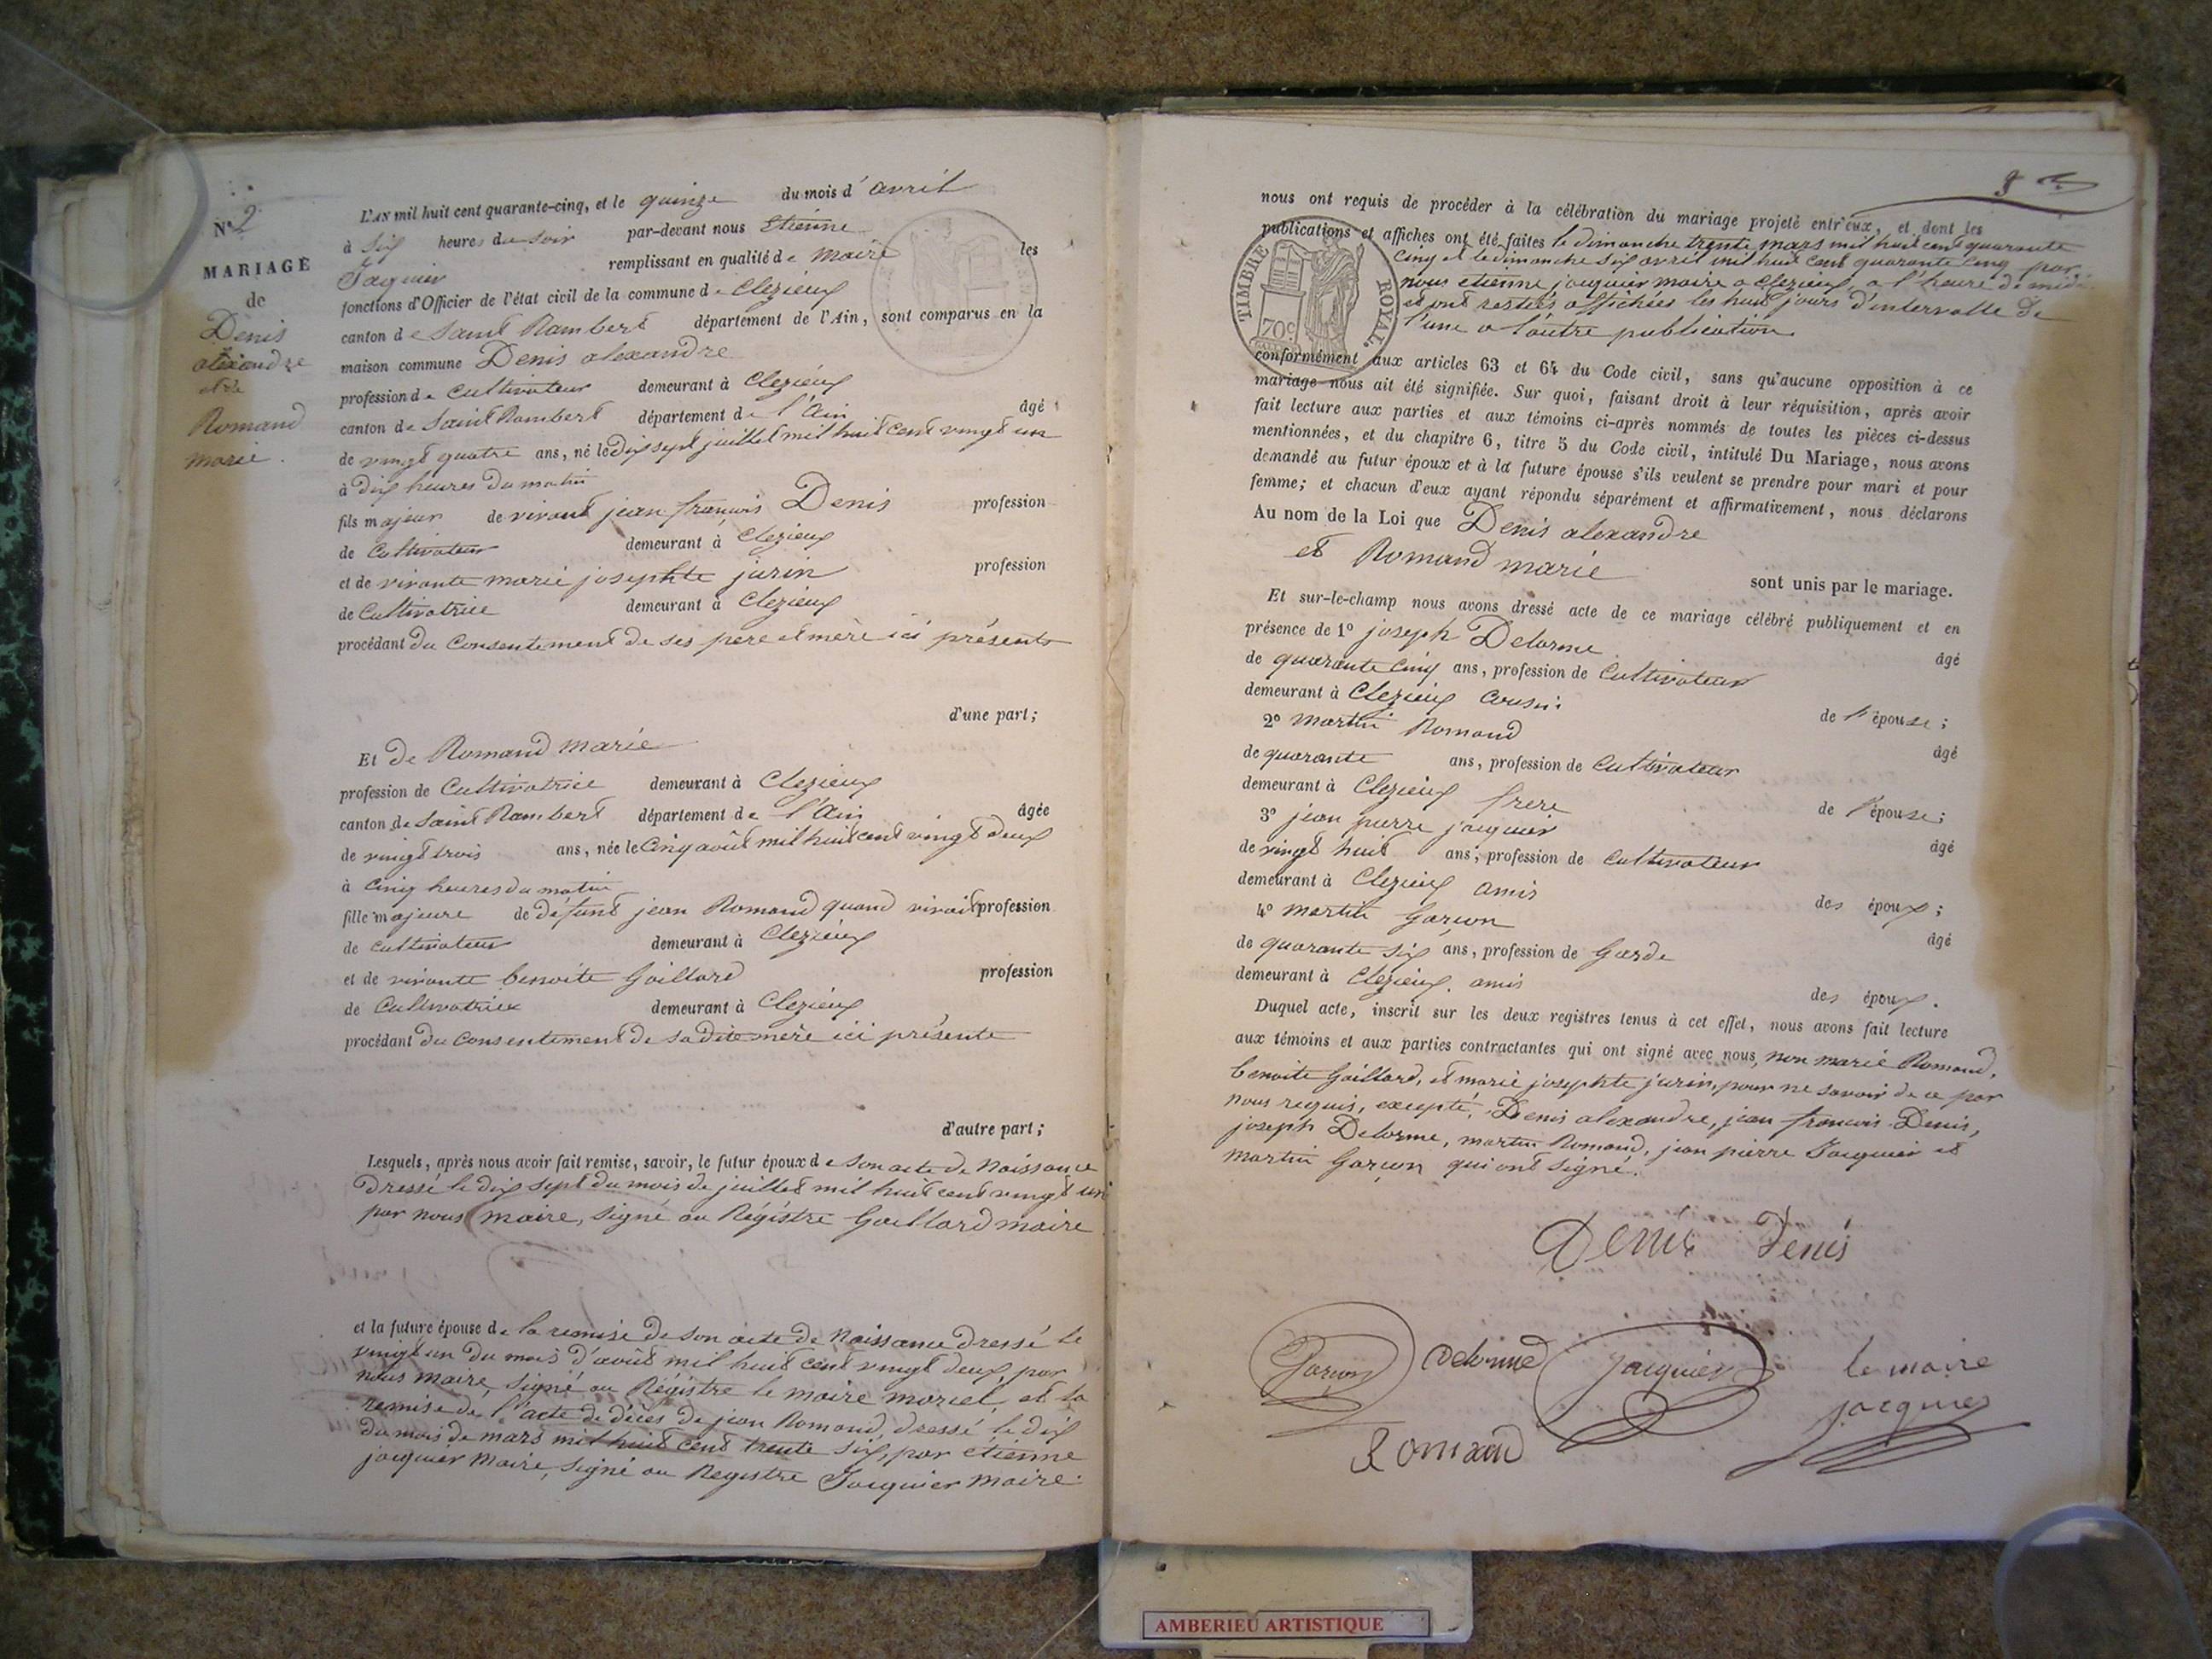 N° 2
MARIAGE
de
Denis
alexandre
et de
Romand
marie.
L'AN mil huit cent quarante-cinq, et le quinze du mois d'avril
à six heures du soir par-devant nous Etienne
Jaquier remplissant en qualité de maire les
fonctions d'Officier de l'état civil de la commune de Clezieux
canton de Saint Rambert département de l'Ain, sont comparus en la
maison commune Denis alexandre
profession de Cultivateur demeurant à Clezieux
canton de Saint Rambert département de l'Ain âgé
de vingt quatre ans, né le Dix sept juillet mil huit cent vingt un
à dix heures du matin
fils majeur de vivant jean françois Denis profession
de Cultivateur demeurant à Clezieux
et de vivante marie josephte jurin profession
de Cultivatrice demeurant à Clezieux
procédant du Consentement de ses pere et mère ici présents
d'une part;
Et de Romand marie
profession de Cultivatrice demeurant à Clezieux
canton de Saint Rambert département de l'Ain âgée
de vingt trois ans, née le Cinq août mil huit cent vingt deux
à Cinq heures du matin
fille majeure de défunt jean Romand quand vivait profession
de cultivateur demeurant à Clezieux
et de vivante benoite Gaillard profession
de Cultivatrice demeurant à Clezieux
procédant du consentement de sa dite mère ici présente
d'autre part;
Lesquels, après nous avoir fait remise, savoir, le futur époux de son acte de Naissance
Dressé le dix sept du mois de juillet mil huit cent vingt un
par nous maire, signé au Régistre Gaillard maire
et la future épouse de la remise de son acte de Naissance dressé le
vingt un du mois d'août mil huit cent vingt deux, par
nous maire, signé au Régistre le maire morcel, et la
remise de l'acte de décès de jean Romand, dressé le dix
du mois de mars mil huit cent trente six, par étienne
jacquier Maire, signé au Registre Jacquier maire.
nous ont requis de procéder à la célébration du mariage projeté entr'eux, et dont les
publications et affiches ont été faites le dimanche trente mars mil huit cent quarante
Cinq et le dimanche six avril mil huit cent quarante cinq par
nous etienne jacquier maire a Clezieux, a l'heure de midi
et ont restés affichées les huit jours d'intervalle de
l'une a l'autre publication.
TIMBRE ROYAL.
70c
conformément aux articles 63 et 64 du Code civil, sans qu'aucune opposition à ce
mariage nous ait été signifiée. Sur quoi, faisant droit à leur réquisition, après avoir
fait lecture aux parties et aux témoins ci-après nommés de toutes les pièces ci-dessus
mentionnées, et du chapitre 6, titre 5 du Code civil, intitulé Du Mariage, nous avons
demandé au futur époux et à la future épouse s'ils veulent se prendre pour mari et pour
femme; et chacun d'eux ayant répondu séparément et affirmativement, nous déclarons
Au nom de la Loi que Denis alexandre
et Romand marie
sont unis par le mariage.
Et sur-le-champ nous avons dressé acte de ce mariage célébré publiquement et en
présence de 1° joseph Delorme âgé
de quarante cinq ans, profession de Cultivateur
demeurant à Clezieux cousin de l'épouse;
2° martin Romand âgé
de quarante ans, profession de Cultivateur
demeurant à Clezieux frere de l'épouse;
3° jean pierre jacquier âgé
de vingt huit ans, profession de Cultivateur
demeurant à Clezieux amis des époux;
4° martin Garçon âgé
de quarante six ans, profession de Garde
demeurant à Clezieux. amis des époux.
Duquel acte, inscrit sur les deux registres tenus à cet effet, nous avons fait lecture
aux témoins et aux parties contractantes qui ont signé avec nous, non marie Romand,
benoite Gaillard, et marie josephte jurin, pour ne savoir de ce par
nous requis, excepté, Denis alexandre, jean francois Denis,
joseph Delorme, martin Romand, jean pierre Jacquier et
martin Garçon qui ont signé.
Denis Denis
Garçon Delorme Jacquier le maire
jacquier
Romand
AMBERIEU ARTISTIQUE